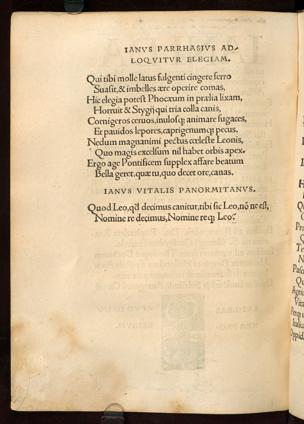 IANVS PARRHASIVS AD,
LOQVITVR ELEGIAM.
Qui tibi molle latus fulgenti cingere ferro
Suasit, & imbelles ære operire comas,
Hic elegia potest Phocæum in prælia lixam,
Horruit & Stygii qui tria colla canis,
Cornigeros ceruos, mulosq; animare fugaces,
Et pauidos lepores, caprigenumq; pecus.
Nedum magnanimi pectus cœleste Leonis,
Quo magis excelsum nil habet orbis apex.
Ergo age Pontificem supplex affare beatum
Bella geret. quæ tu, quo decet ore, canas.
IANVS VITALIS PANORMITANVS.
Quod Leo, decimus canitur, tibi sic Leo, est,
Nomine re decimus, Nomine req; Leo.